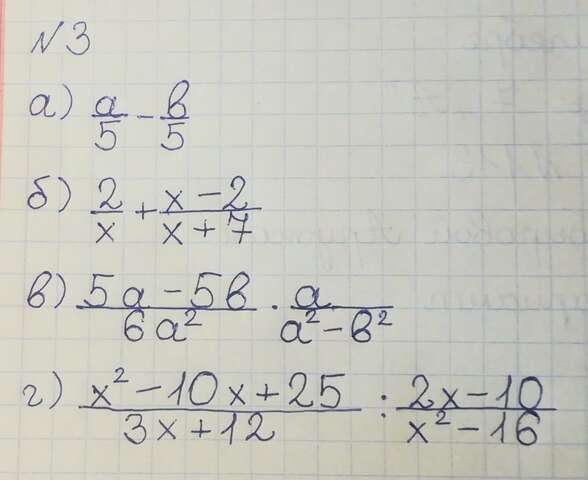 №3
а) a/5 - b/5
б) 2/x + (x - 2)/(x + 7)
в) (5a - 5b)/(6a²) · a/(a² - b²)
г) (x² - 10x + 25)/(3x + 12) : (2x - 10)/(x² - 16)